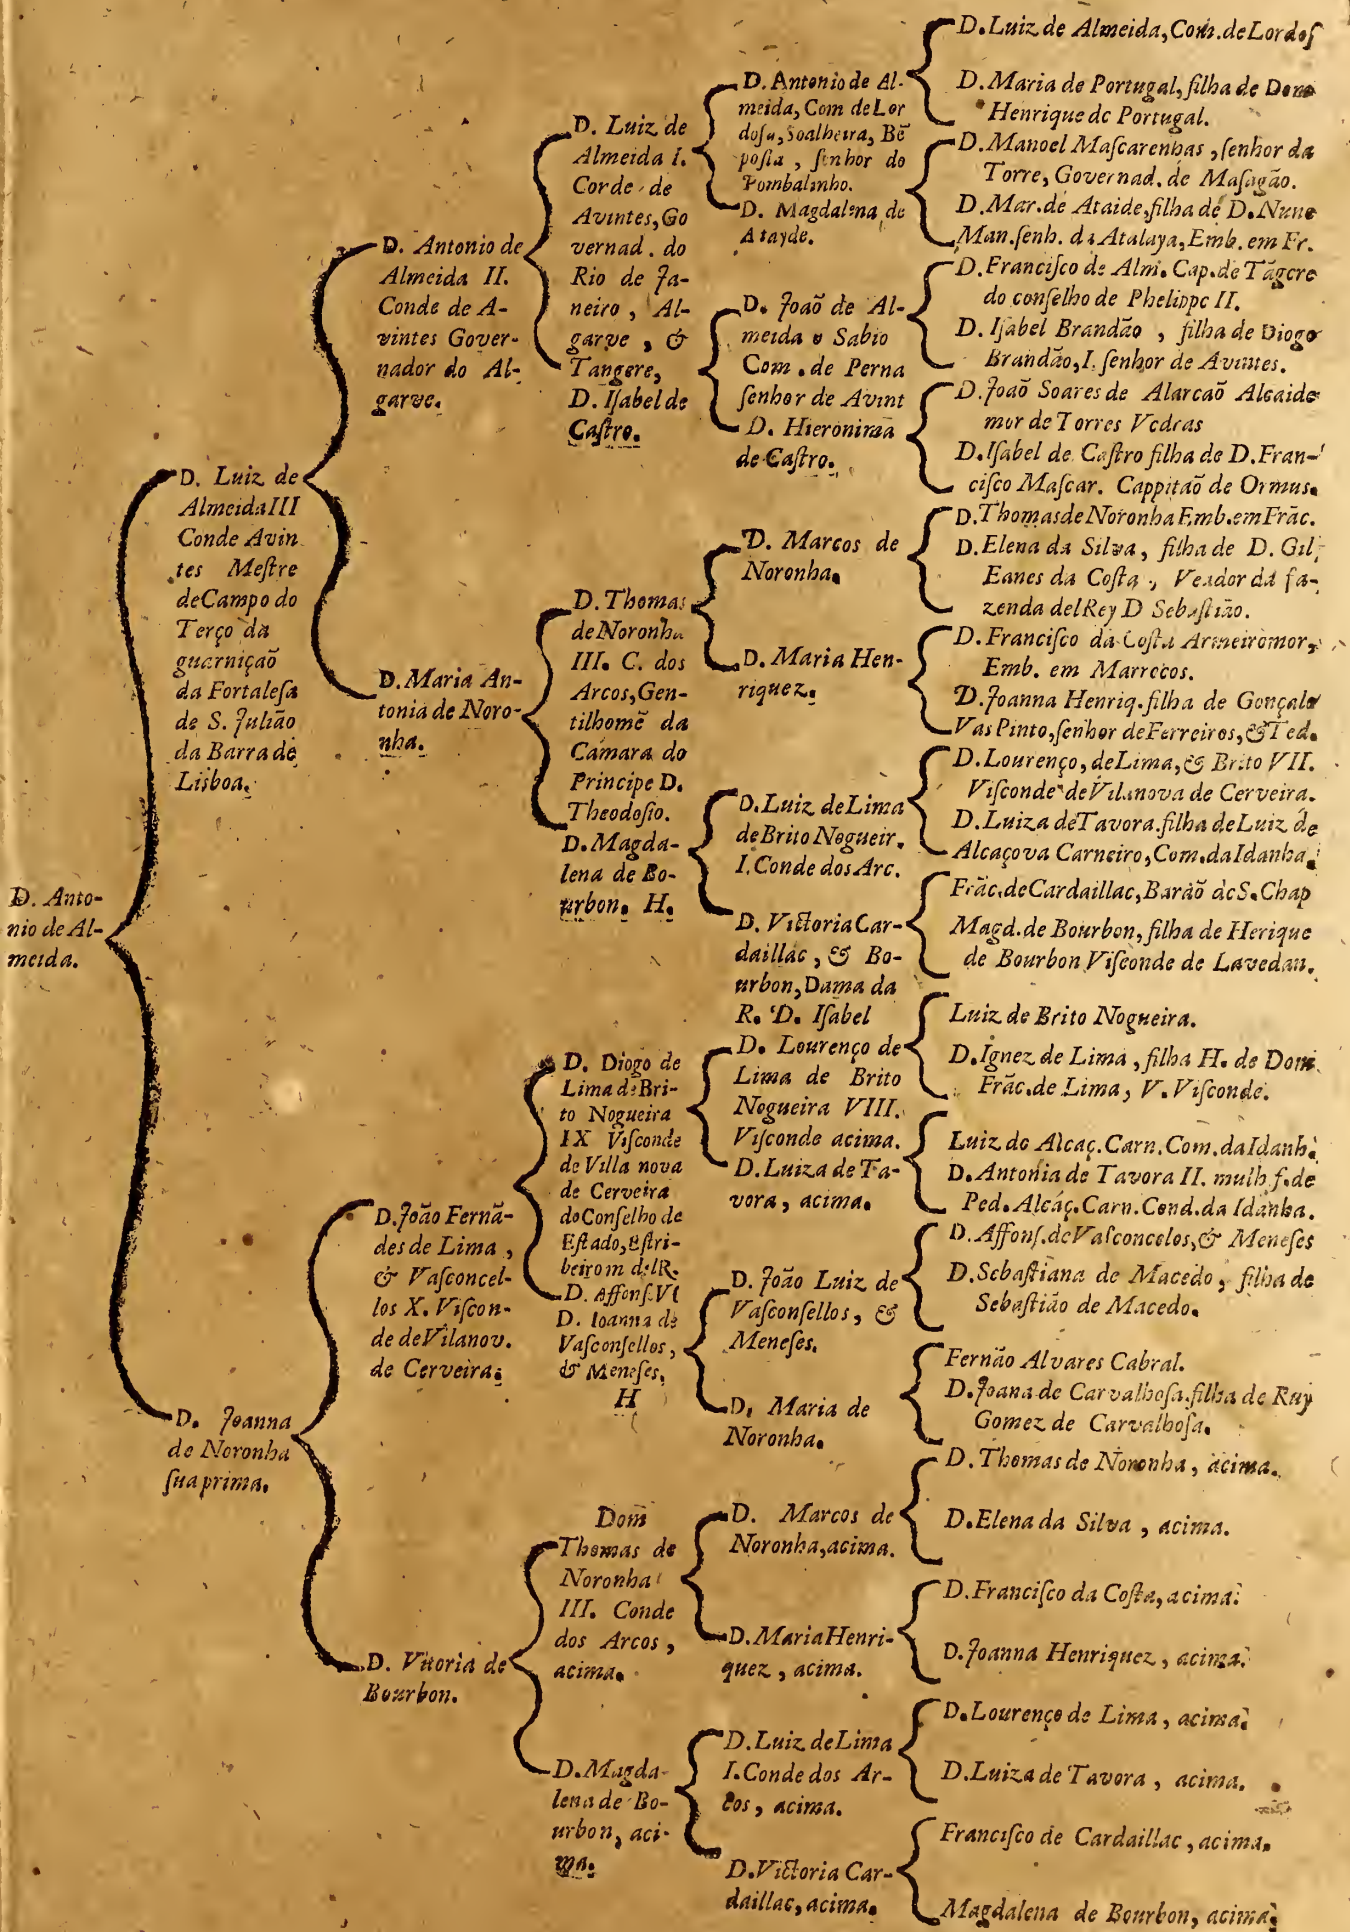 D. Anto-
nio de Al-
meida.
D. Luiz de
Almeida III
Conde Avin
tes Meſtre
de Campo do
Terço da
guarniçaõ
da Fortaleſa
de S. Julião
da Barra de
Lisboa.
D. Joanna
de Noronha
ſua prima.
D. Antonio de
Almeida II.
Conde de A-
vintes Gover-
nador do Al-
garve.
D. Maria An-
tonia de Noro-
nha.
D. João Fernã-
des de Lima,
& Vaſconcel-
los X. Viſcon-
de de Vilanov.
de Cerveira.
D. Vitoria de
Bourbon.
D. Luiz de
Almeida I.
Corde de
Avintes, Go
vernad. do
Rio de Ja-
neiro, Al-
garve, &
Tangere,
D. Iſabel de
Caſtro.
D. Thomas
de Noronha
III. C. dos
Arcos, Gen-
tilhomẽ da
Camara do
Principe D.
Theodoſio.
D. Magda-
lena de Bo-
urbon. H.
D. Diogo de
Lima de Bri-
to Nogueira
IX Viſconde
de Villa nova
de Cerveira
do Conſelho de
Eſtado, Eſtri-
beiro m delR.
D. Affonſ. VI
D. Ioanna de
Vaſconſellos,
& Meneſes.
H
Dom
Thomas de
Noronha
III. Conde
dos Arcos,
acima.
D. Magda-
lena de Bo-
urbon, aci-
ma.
D. Antonio de Al-
meida, Com de Lor
doſa, Soalheira, Bẽ
poſta, ſenhor do
Pombalinho.
D. Magdalena de
Atayde.
D. Joaõ de Al-
meida o Sabio
Com. de Perna
ſenhor de Avint
D. Hieronima
de Caſtro.
D. Marcos de
Noronha.
D. Maria Hen-
riquez.
D. Luiz de Lima
de Brito Nogueir.
I. Conde dos Arc.
D. Victoria Car-
daillac, & Bo-
urbon, Dama da
R. D. Iſabel
D. Lourenço de
Lima de Brito
Nogueira VIII.
Viſconde acima.
D. Luiza de Ta-
vora, acima.
D. João Luiz de
Vaſconſellos, &
Meneſes.
D. Maria de
Noronha.
D. Marcos de
Noronha, acima.
D. Maria Henri-
quez, acima.
D. Luiz de Lima
I. Conde dos Ar-
cos, acima.
D. Victoria Car-
daillac, acima.
D. Luiz de Almeida, Com. de Lordoſ
D. Maria de Portugal, filha de Dom
Henrique de Portugal.
D. Manoel Maſcarenhas, ſenhor da
Torre, Governad. de Maſagão.
D. Mar. de Ataide, filha de D. Nuno
Man. ſenh. da Atalaya, Emb. em Fr.
D. Franciſco de Alm. Cap. de Tãgere
do conſelho de Phelippe II.
D. Iſabel Brandão, filha de Diogo
Brandão, I. ſenhor de Avintes.
D. Joaõ Soares de Alarcaõ Alcaide
mor de Torres Vedras
D. Iſabel de Caſtro filha de D. Fran-
ciſco Maſcar. Cappitaõ de Ormus.
D. Thomas de Noronha Emb. em Frãc.
D. Elena da Silva, filha de D. Gil
Eanes da Coſta, Veador da fa-
zenda delRey D Sebaſtião.
D. Franciſco da Coſta Armeiro mor,
Emb. em Marrocos.
D. Joanna Henriq. filha de Gonçalo
Vas Pinto, ſenhor de Ferreiros, & Ted.
D. Lourenço, de Lima, & Brito VII.
Viſconde de Vilanova de Cerveira.
D. Luiza de Tavora. filha de Luiz de
Alcaçova Carneiro, Com. da Idanha.
Frãc. de Cardaillac, Barão de S. Chap
Magd. de Bourbon, filha de Herique
de Bourbon Viſconde de Lavedan.
Luiz de Brito Nogueira.
D. Ignez de Lima, filha H. de Dom
Frãc. de Lima, V. Viſconde.
Luiz de Alcaç. Carn. Com. da Idanh.
D. Antonia de Tavora II. mulh. f. de
Ped. Alcáç. Carn. Cond. da Idanha.
D. Affonſ. de Vaſconcelos, & Meneſes
D. Sebaſtiana de Macedo, filha de
Sebaſtião de Macedo.
Fernão Alvares Cabral.
D. Joana de Carvalhoſa. filha de Ruy
Gomez de Carvalhoſa.
D. Thomas de Noronha, acima.
D. Elena da Silva, acima.
D. Franciſco da Coſta, acima.
D. Joanna Henriquez, acima.
D. Lourenço de Lima, acima.
D. Luiza de Tavora, acima.
Franciſco de Cardaillac, acima.
Magdalena de Bourbon, acima.